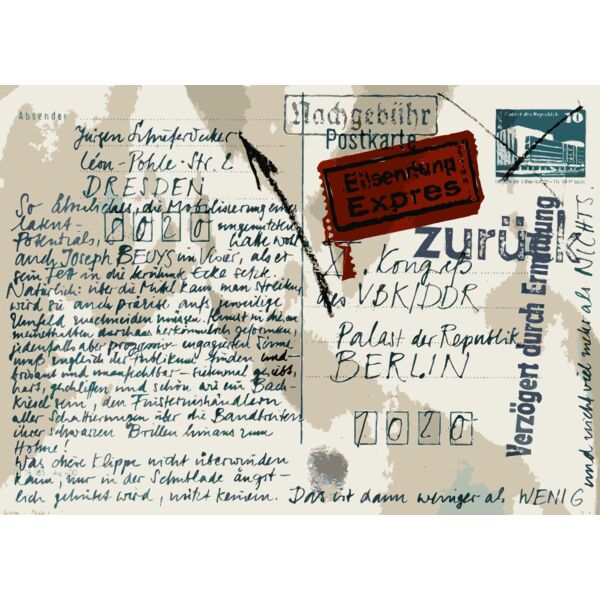 Absender
Jürgen Schieferdecker
Léon-Pohle-Str. 2
DRESDEN
8020
So Ähnliches, die Mobilisierung eines
latent- ungenutzten
Potentials, hatte wohl
auch Joseph BEUYS im Visier, als er
sein Fett in die berühmte Ecke setzte.
Natürlich: über die Mittel kann man streiten,
wird sie auch präzise aufs jeweilige
Umfeld zuschneiden müssen. Kunst in diesem
durchaus herkömmlich geformten,
jedenfalls aber progressiv engagierten Sinne
muß zugleich der Publikum finden und-
brisant und unanfechtbar - siebenmal gesiebt,
hart, geschliffen und schön wie ein Bach-
kiesel sein, den Finsternishändlern
aller Schattierungen über die
ihrer schwarzen Brillen hinaus zum
Hohne!
Was diese Klippe nicht überwinden
kann, nur in der Schublade ängst-
lich gehütet wird, nützt keinem. Das ist dann weniger als WENIG
und nicht viel mehr als NICHTS.
Nachgebühr
Postkarte
Eilsendung
Expres
Palast der Republik
10
zurück
Verzögert durch Ermittlung
X. Kongreß
des VBK/DDR
Palast der Republik
BERLIN
1020